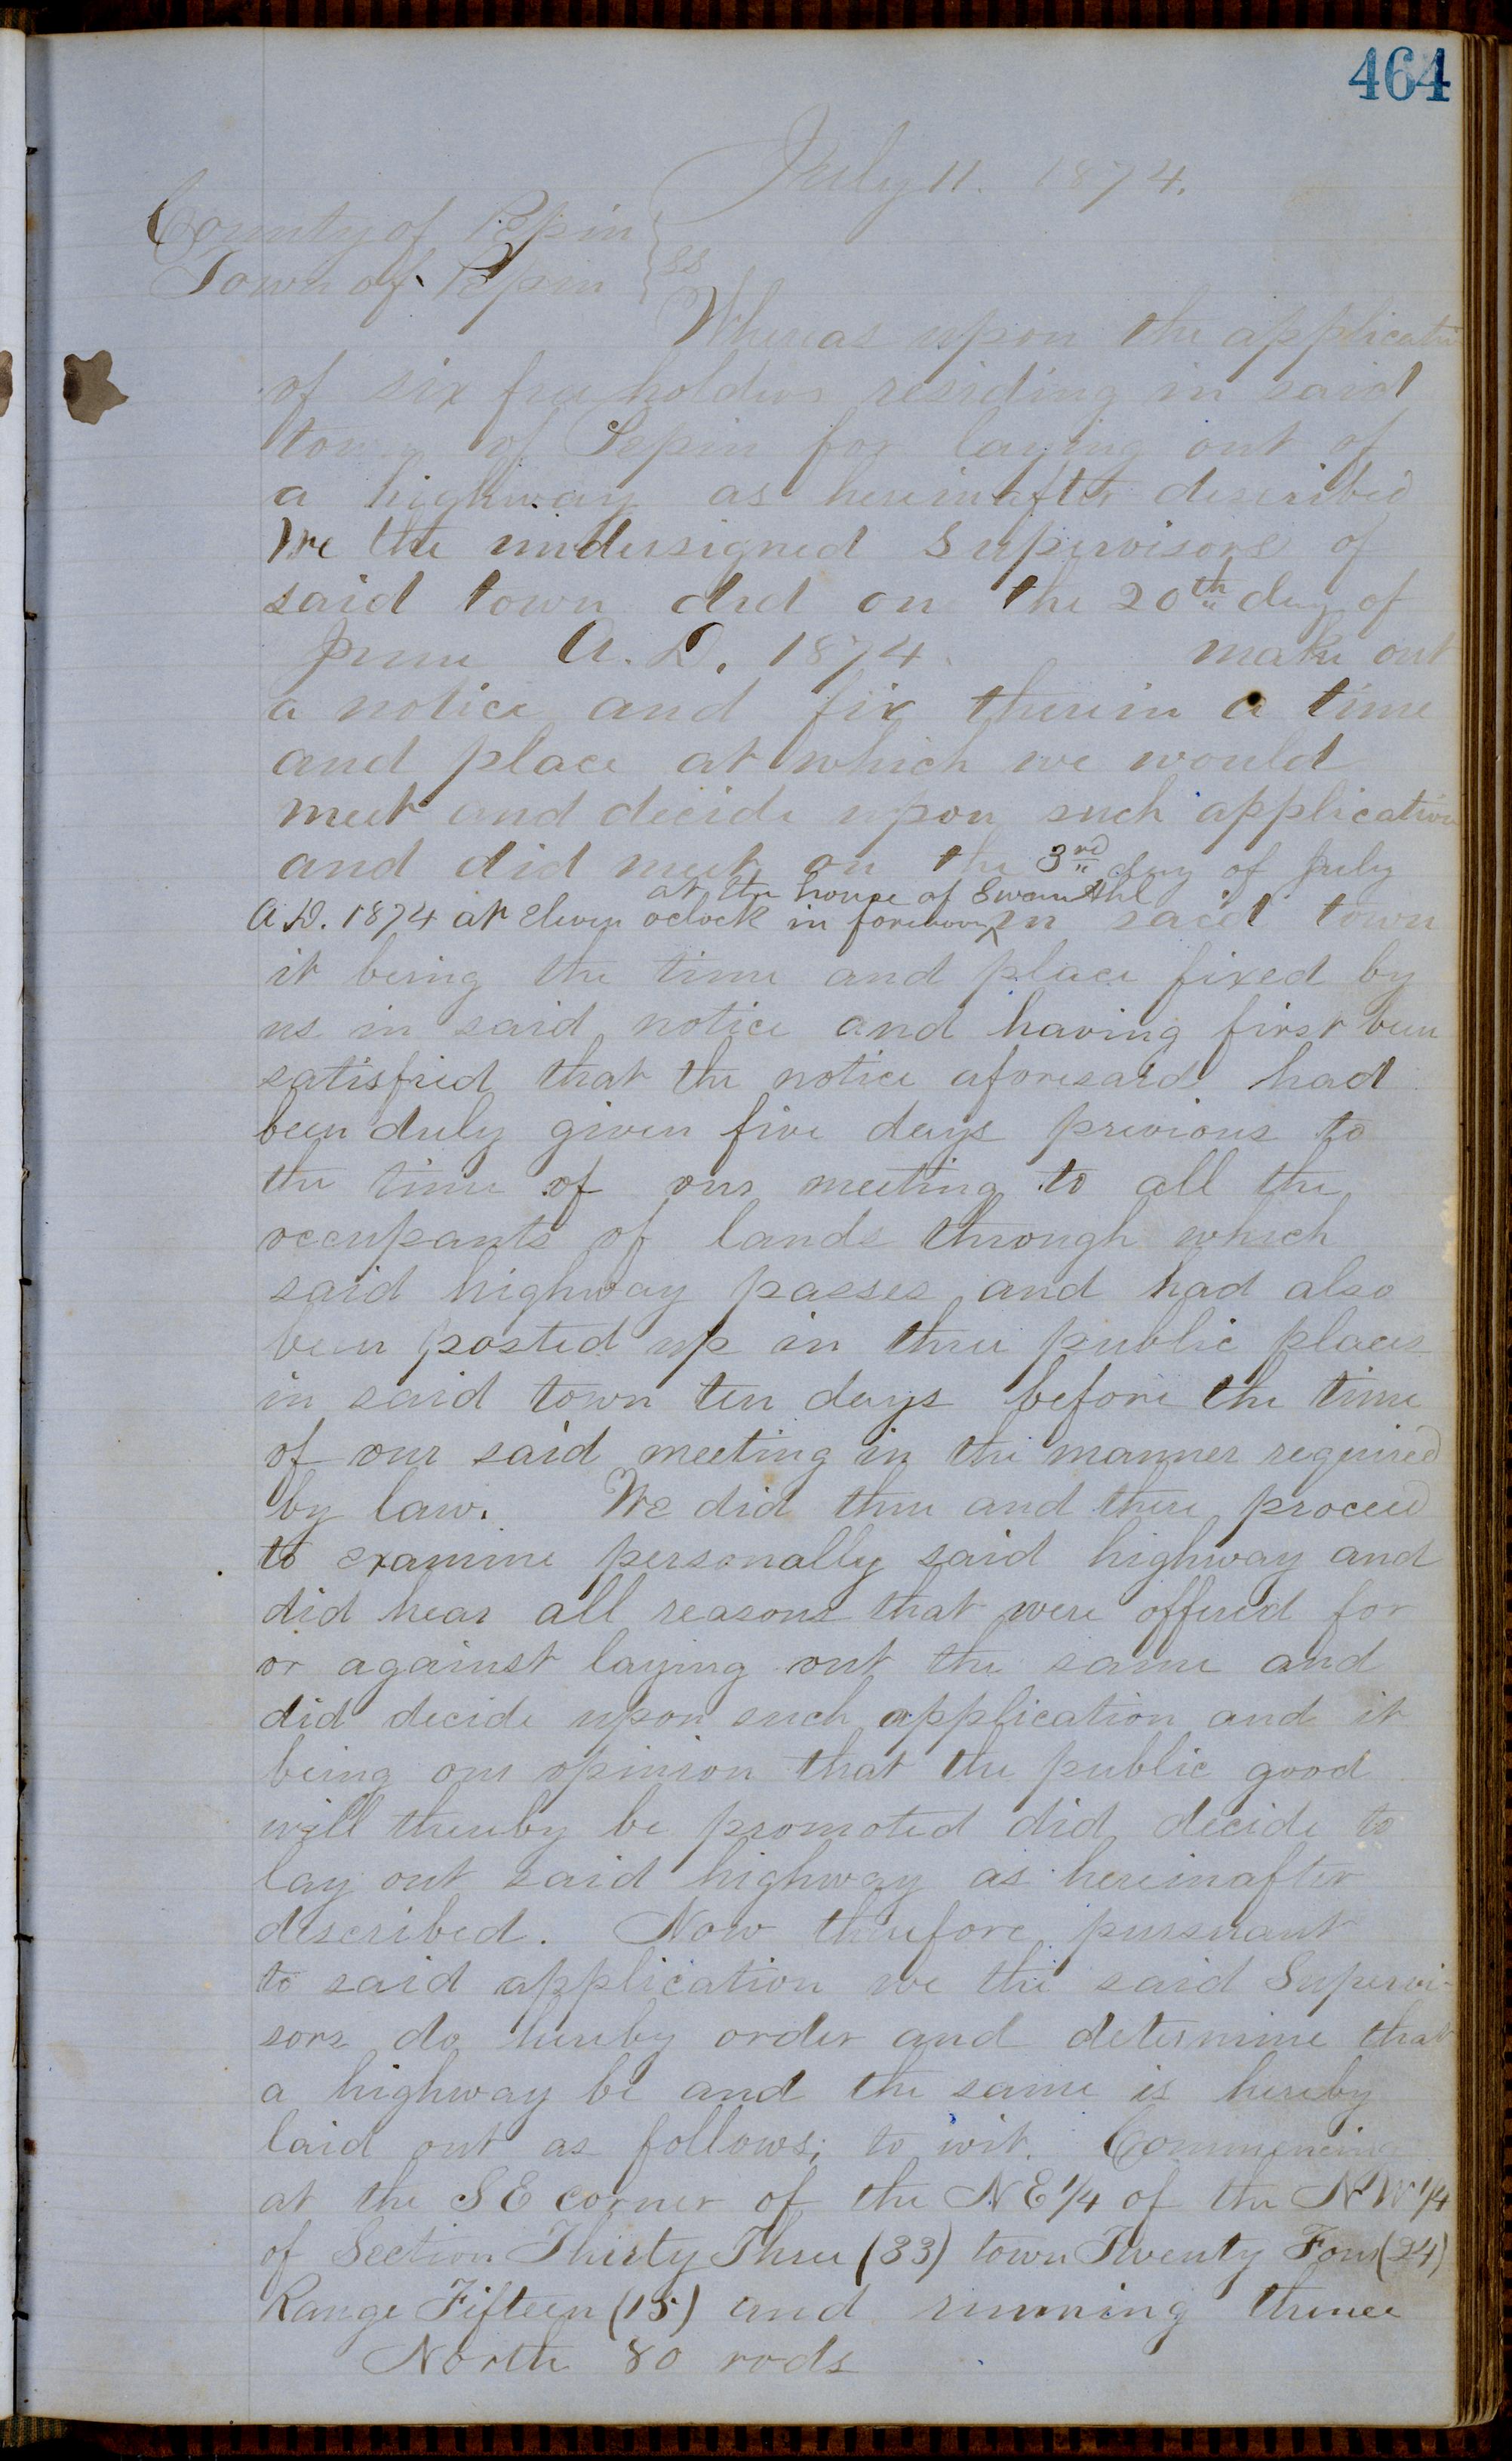 464
July 11. 1874.
County of Pepin } ss
Town of Pepin }
Whereas upon the applicatio
of six free holders residing in said
town of Pepin for laying out of
a highway as hereinafter described
We the undersigned Supervisors of
said town did on the 20th day of
June A. D. 1874. make out
a notice and fix therein a time
and place at which we would
meet and decide upon such application
and did meet on the 3rd day of July
at the house of Swan Ahl
A.D. 1874 at Eleven oclock in forenoon ^ in said town
it being the time and place fixed by
us in said notice and having first been
satisfied that the notice aforesaid had
been duly given five days previous to
the time of our meeting to all the
occupants of lands through which
said highway passes and had also
been posted up in three public places
in said town ten days before the time
of our said meeting in the manner required
by law. We did then and there proceed
to examine personally said highway and
did hear all reasons that were offered for
or against laying out the same and
did decide upon such application and it
being our opinion that the public good
will thereby be promoted did decide to
lay out said highway as hereinafter
described. Now therefore pursuant
to said application we the said Supervi-
sors do hereby order and determine that
a highway be and the same is hereby
laid out as follows; to wit. Commencing
at the SE corner of the NE 1/4 of the NW 1/4
of Section Thirty Three (33) town Twenty Four (24)
Range Fifteen (15) and running thence
North 80 rods